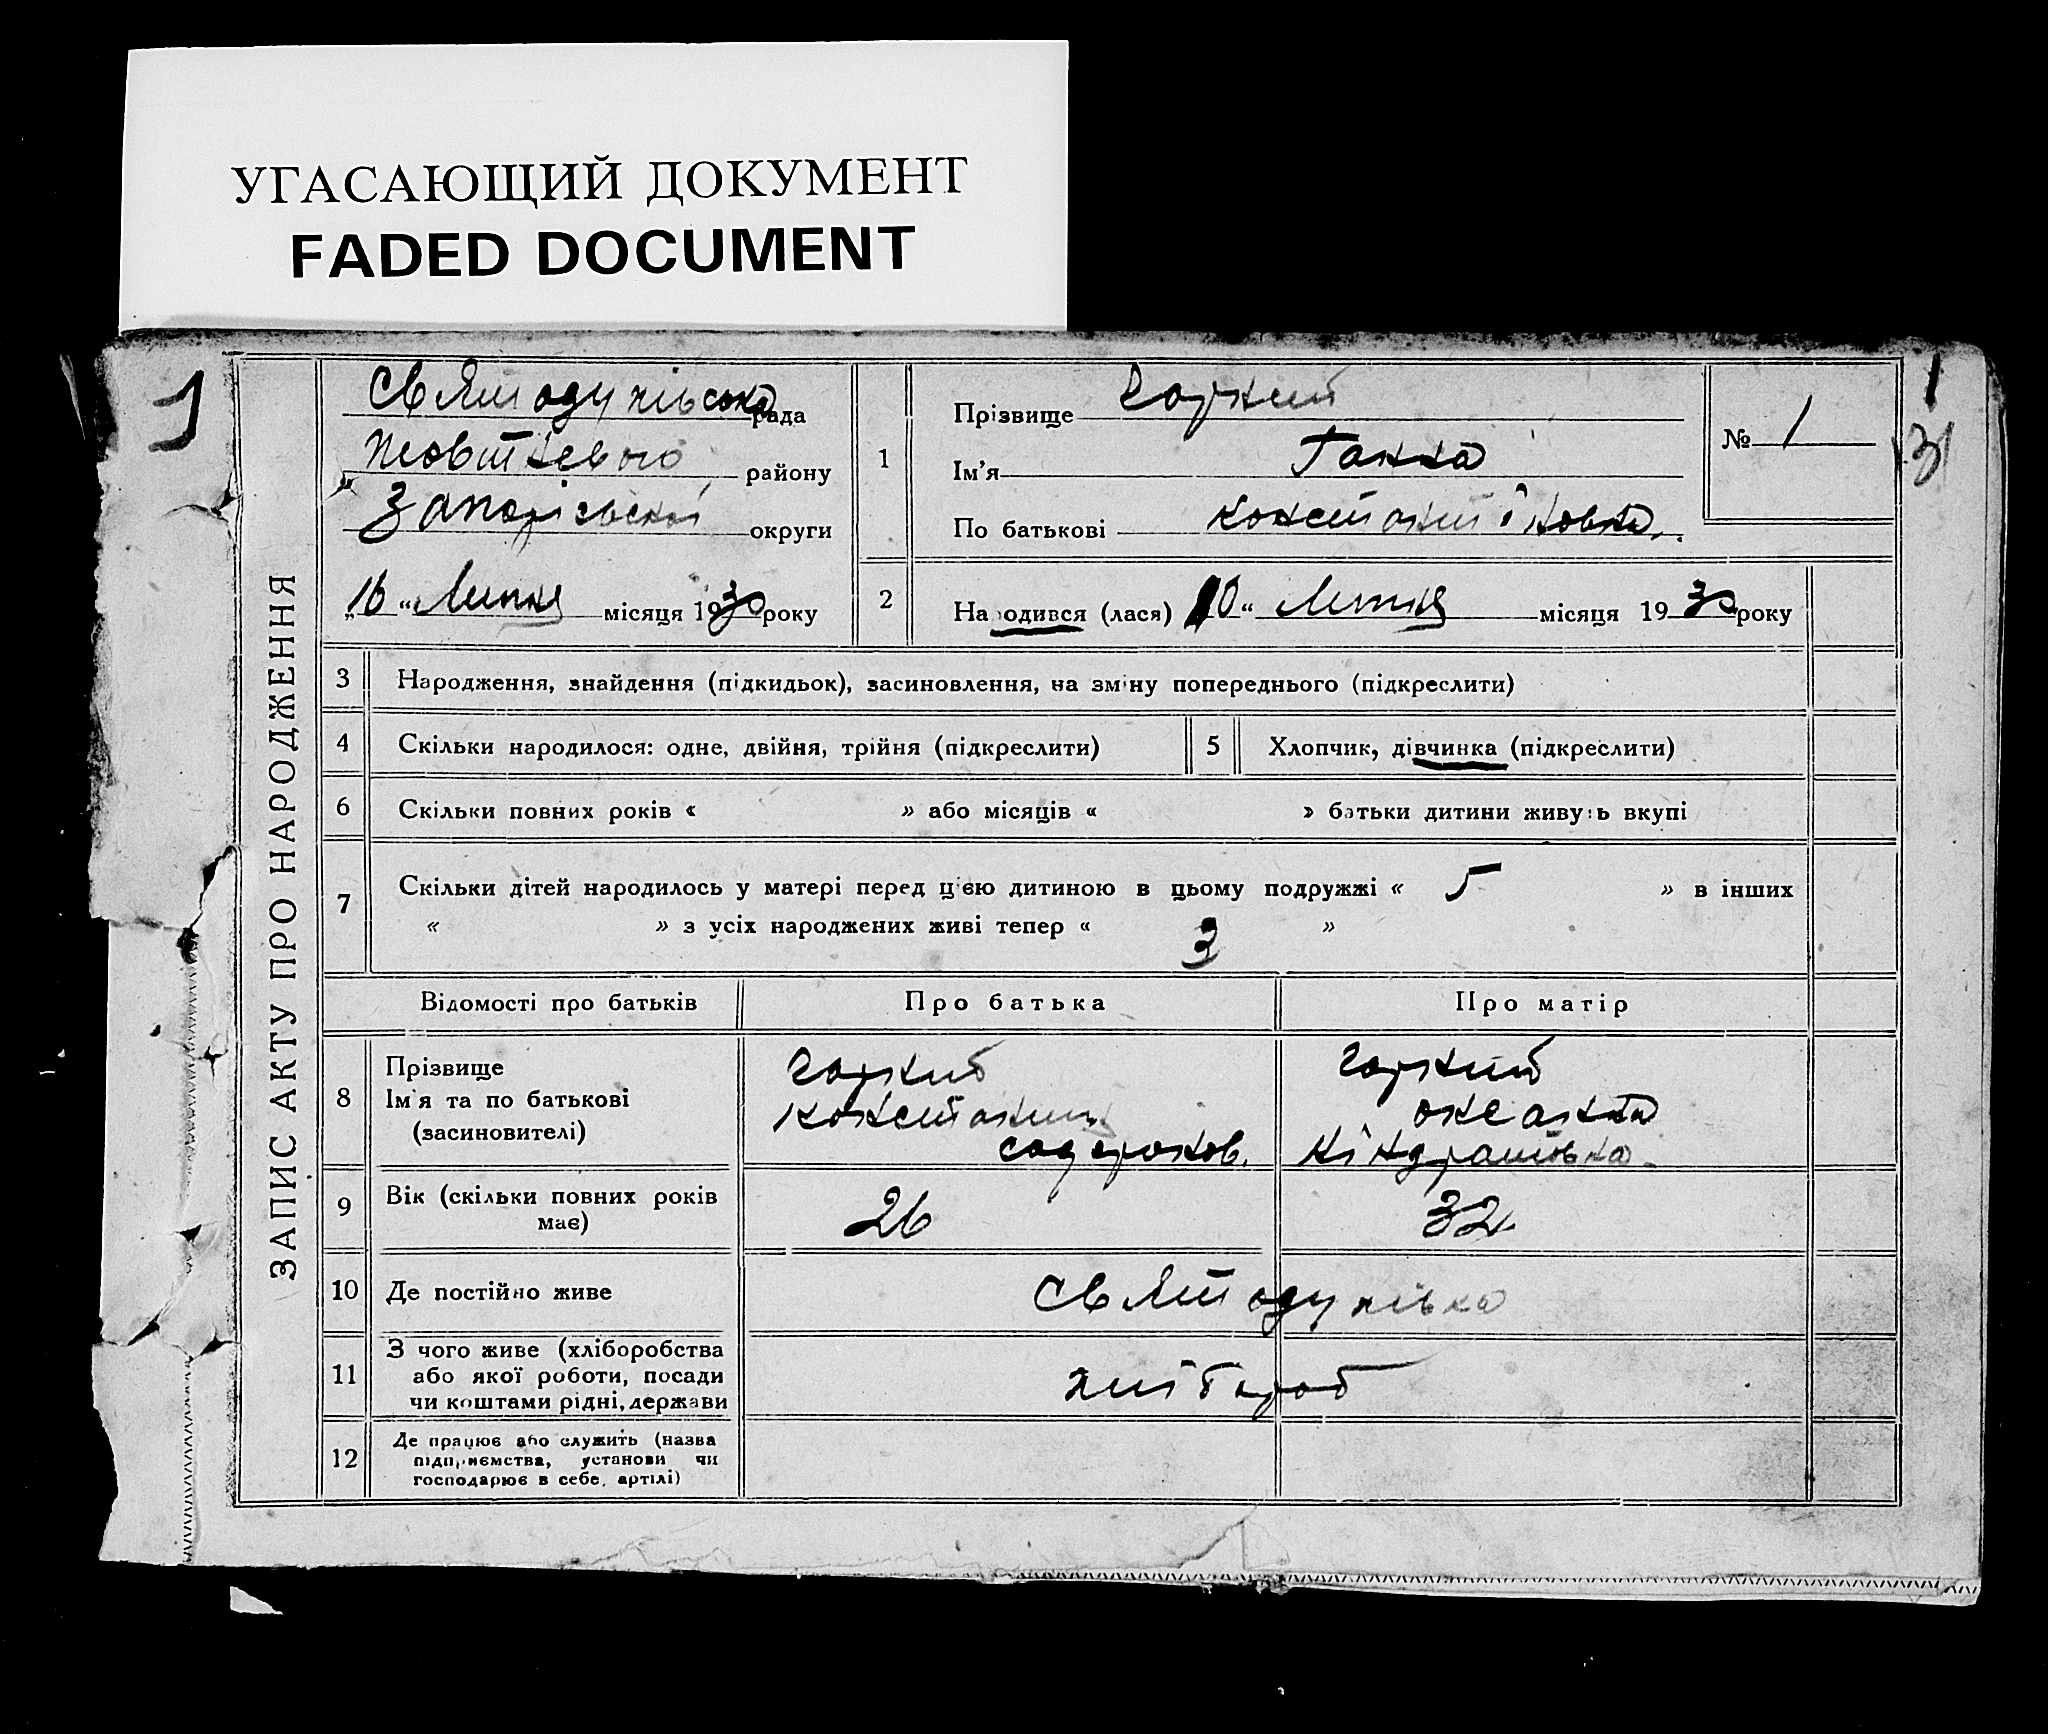 УГАСАЮЩИЙ ДОКУМЕНТ
FADED DOCUMENT
1
1
31
ЗАПИС АКТУ ПРО НАРОДЖЕННЯ
Святодухівська рада
Жовтневого району
Запорізської округи
„16“ Липня місяця 1930 року
1
Прізвище Горкий
Ім'я Ганна
По батькові Констант іновна.
№ 1
2 Народився (лася) 10“ Липня місяця 1930 року
3 Народження, знайдення (підкидьок), засиновлення, на зміну попереднього (підкреслити)
4 Скільки народилося: одне, двійня, трійня (підкреслити)
5 Хлопчик, дівчинка (підкреслити)
6 Скільки повних років « » або місяців « » батьки дитини живуть вкупі
7 Скільки дітей народилось у матері перед цією дитиною в цьому подружжі « 5 » в інших
« » з усіх народжених живі тепер « 3 »
Відомості про батьків Про батька Про матір
8 Прізвище
Ім'я та по батькові
(засиновителі)
Горкий
Констант
Горкий
Оксанна
Кіндратовна
9 Вік (скільки повних років
має)
26 32
10 Де постійно живе Святодухівка
11 З чого живе (хліборобства
або якої роботи, посади
чи коштами рідні, держави
хлібороб
12 Де працює або служить (назва
підприємства, установи чи
господарює в себе, артілі)